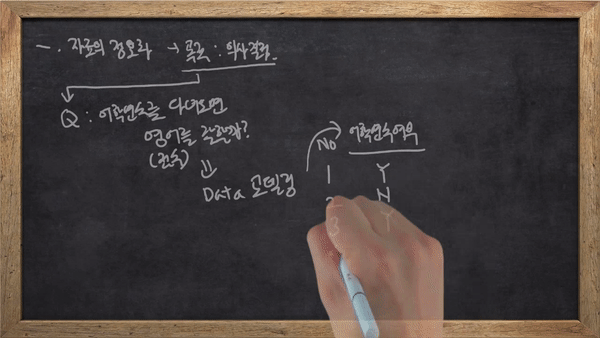 一. 자료의 정보화 → 목표 : 의사결정.
Q : 어학연수를 다녀오면
영어를 잘할까?
(귀속)
⇓
Data 모델링
No 어학연수여부
1 Y
2 N
3 Y